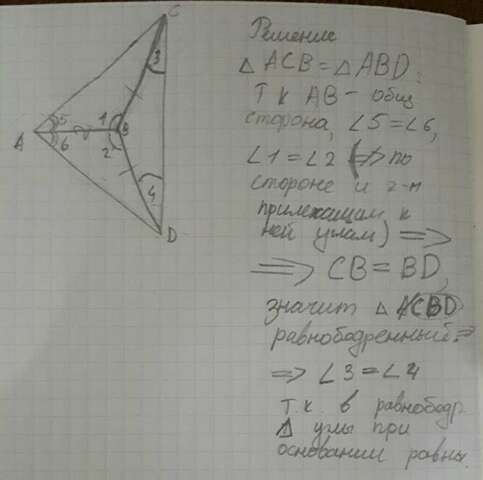 C
3
5
1
A
B
6
2
4
D
Решение
△ ACB = △ ABD,
Т к AB – общ
сторона, ∠5 = ∠6,
∠1 = ∠2 (=> по
стороне и 2-м
прилежащим к
ней углам) =>
=> CB = BD,
значит △ CBD
равнобедренный =>
=> ∠3 = ∠4
Т к в равнобедр.
△ углы при
основании равны.